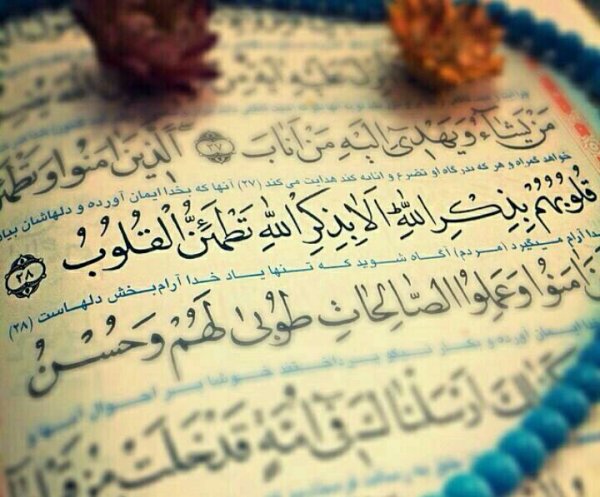 مَن يَشَآءُ وَيَهْدِىٓ إِلَيْهِ مَنْ أَنَابَ ﴿٢٧﴾ الَّذِينَ ءَامَنُوا وَتَطْمَئِ
خواهد گمراه و هر که بدرگاه او تضرع و انابه کند هدایت می کند (۲۷) آنها که بخدا ایمان آورده و دلهاشان بیاد
قُلُوبُهُم بِذِكْرِ اللَّهِ أَلَا بِذِكْرِ اللَّهِ تَطْمَئِنُّ الْقُلُوبُ ﴿٢٨﴾
خدا آرام میگیرد (مردم) آگاه شوید که تنها یاد خدا آرام‌بخش دلهاست (۲۸)
ءَامَنُوا وَعَمِلُوا الصَّالِحَاتِ طُوبَىٰ لَهُمْ وَحُسْنُ
ایمان آورده و بکار نیکو پرداختند خوشا بر احوال آنها و
أَرْسَلْنَاكَ فِىٓ أُمَّةٍ قَدْ خَلَتْ مِن قَبْ